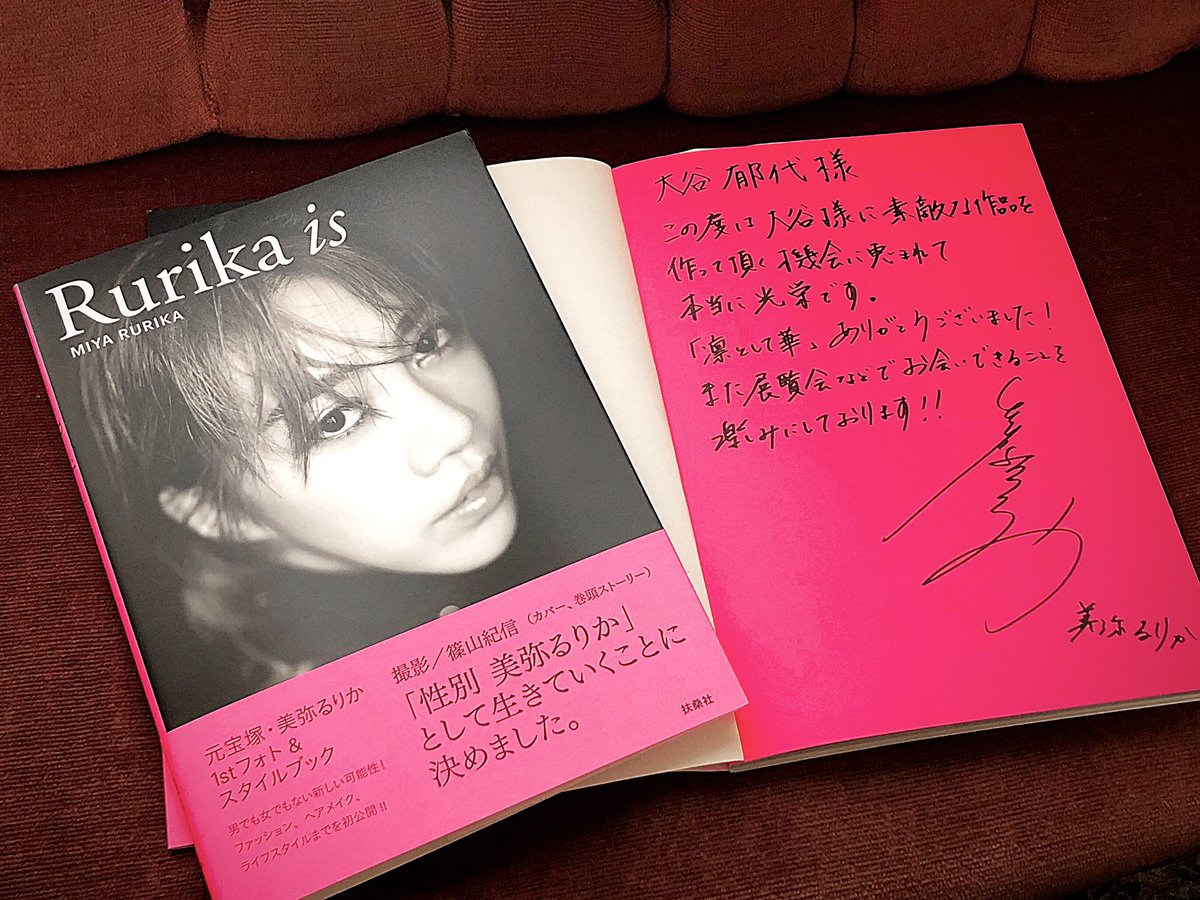 Rurika is
MIYA RURIKA
撮影／篠山紀信（カバー、巻頭ストーリー）
「性別 美弥るりか」
として生きていくことに
決めました。
元宝塚・美弥るりか
1stフォト＆
スタイルブック
男でも女でもない新しい可能性！
ファッション、ヘアメイク、
ライフスタイルまでを初公開!!
扶桑社
大谷 郁代 様
この度は大谷様に素敵な作品を
作って頂く機会に恵まれて
本当に光栄です。
「凛として華」ありがとうございました！
また展覧会などでお会いできることを
楽しみにしております!!
美弥るりか